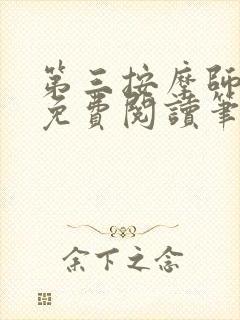 第三按摩師
免費閱讀筆
余下之念